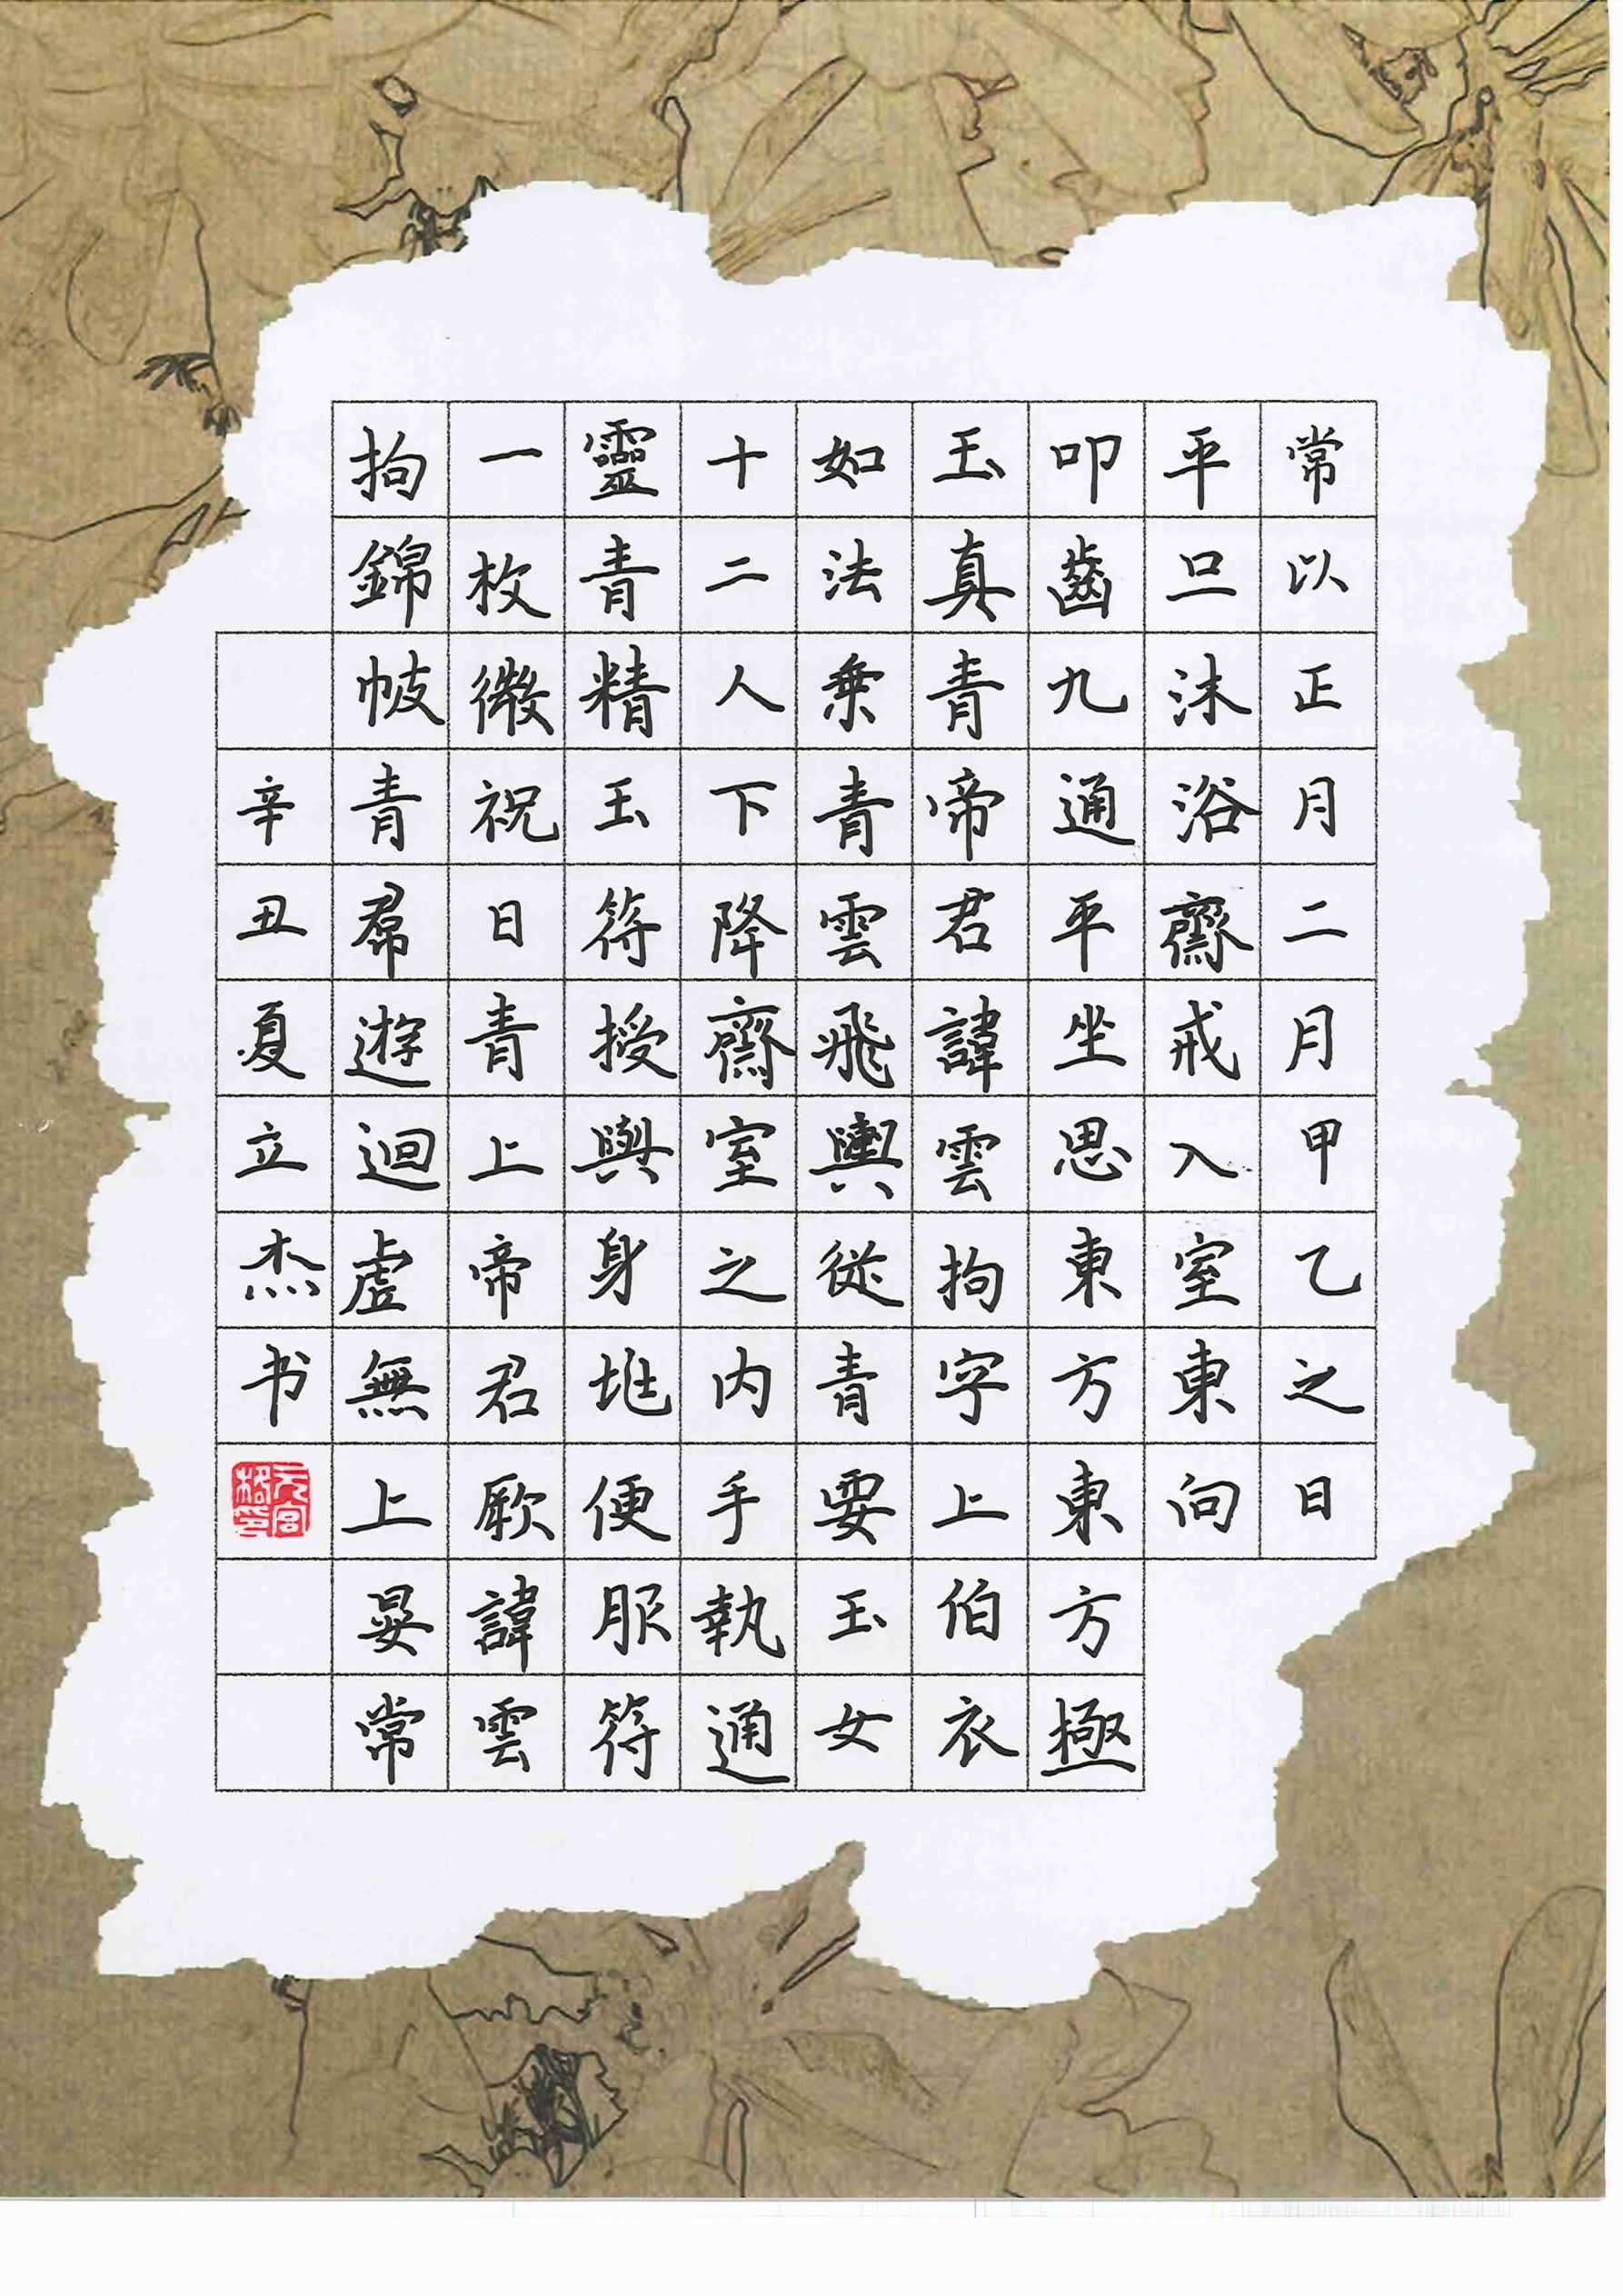 常以正月二月甲乙之日
平旦沐浴齋戒入室東向
叩齒九通平坐思東方東方極
玉真青帝君諱雲拘字上伯衣
如法乗青雲飛輿從青要玉女
十二人下降齋室之内手執通
靈青精玉符授與身地便服符
一枚微祝日青上帝君厥諱雲
拘錦帔青帬遊迴虛無上晏常
辛丑夏立杰书